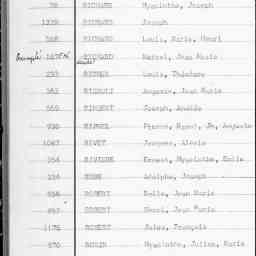 78 RICHARD Hyacinthe, Joseph
1339 RICHARD Joseph
568 RICHARD Louis, Marie, Henri
RICHARD Marcel, Jean Marie
233 Louis, Théodore
382 Auguste, Jean Marie
569 Joseph, Amédée
930 Pierre, Marcel, Jn, Auguste
1067 RIVET Jacques, Alexis
154 RIVIERE Ernest, Hyacinthe, Emile
134 Adolphe, Joseph
556 ROBERT Emile, Jean Marie
857 ROBERT Henri, Jean Marie
1175 ROBERT Jules, François
570 ROBIN Hyacinthe, Julien, Marie